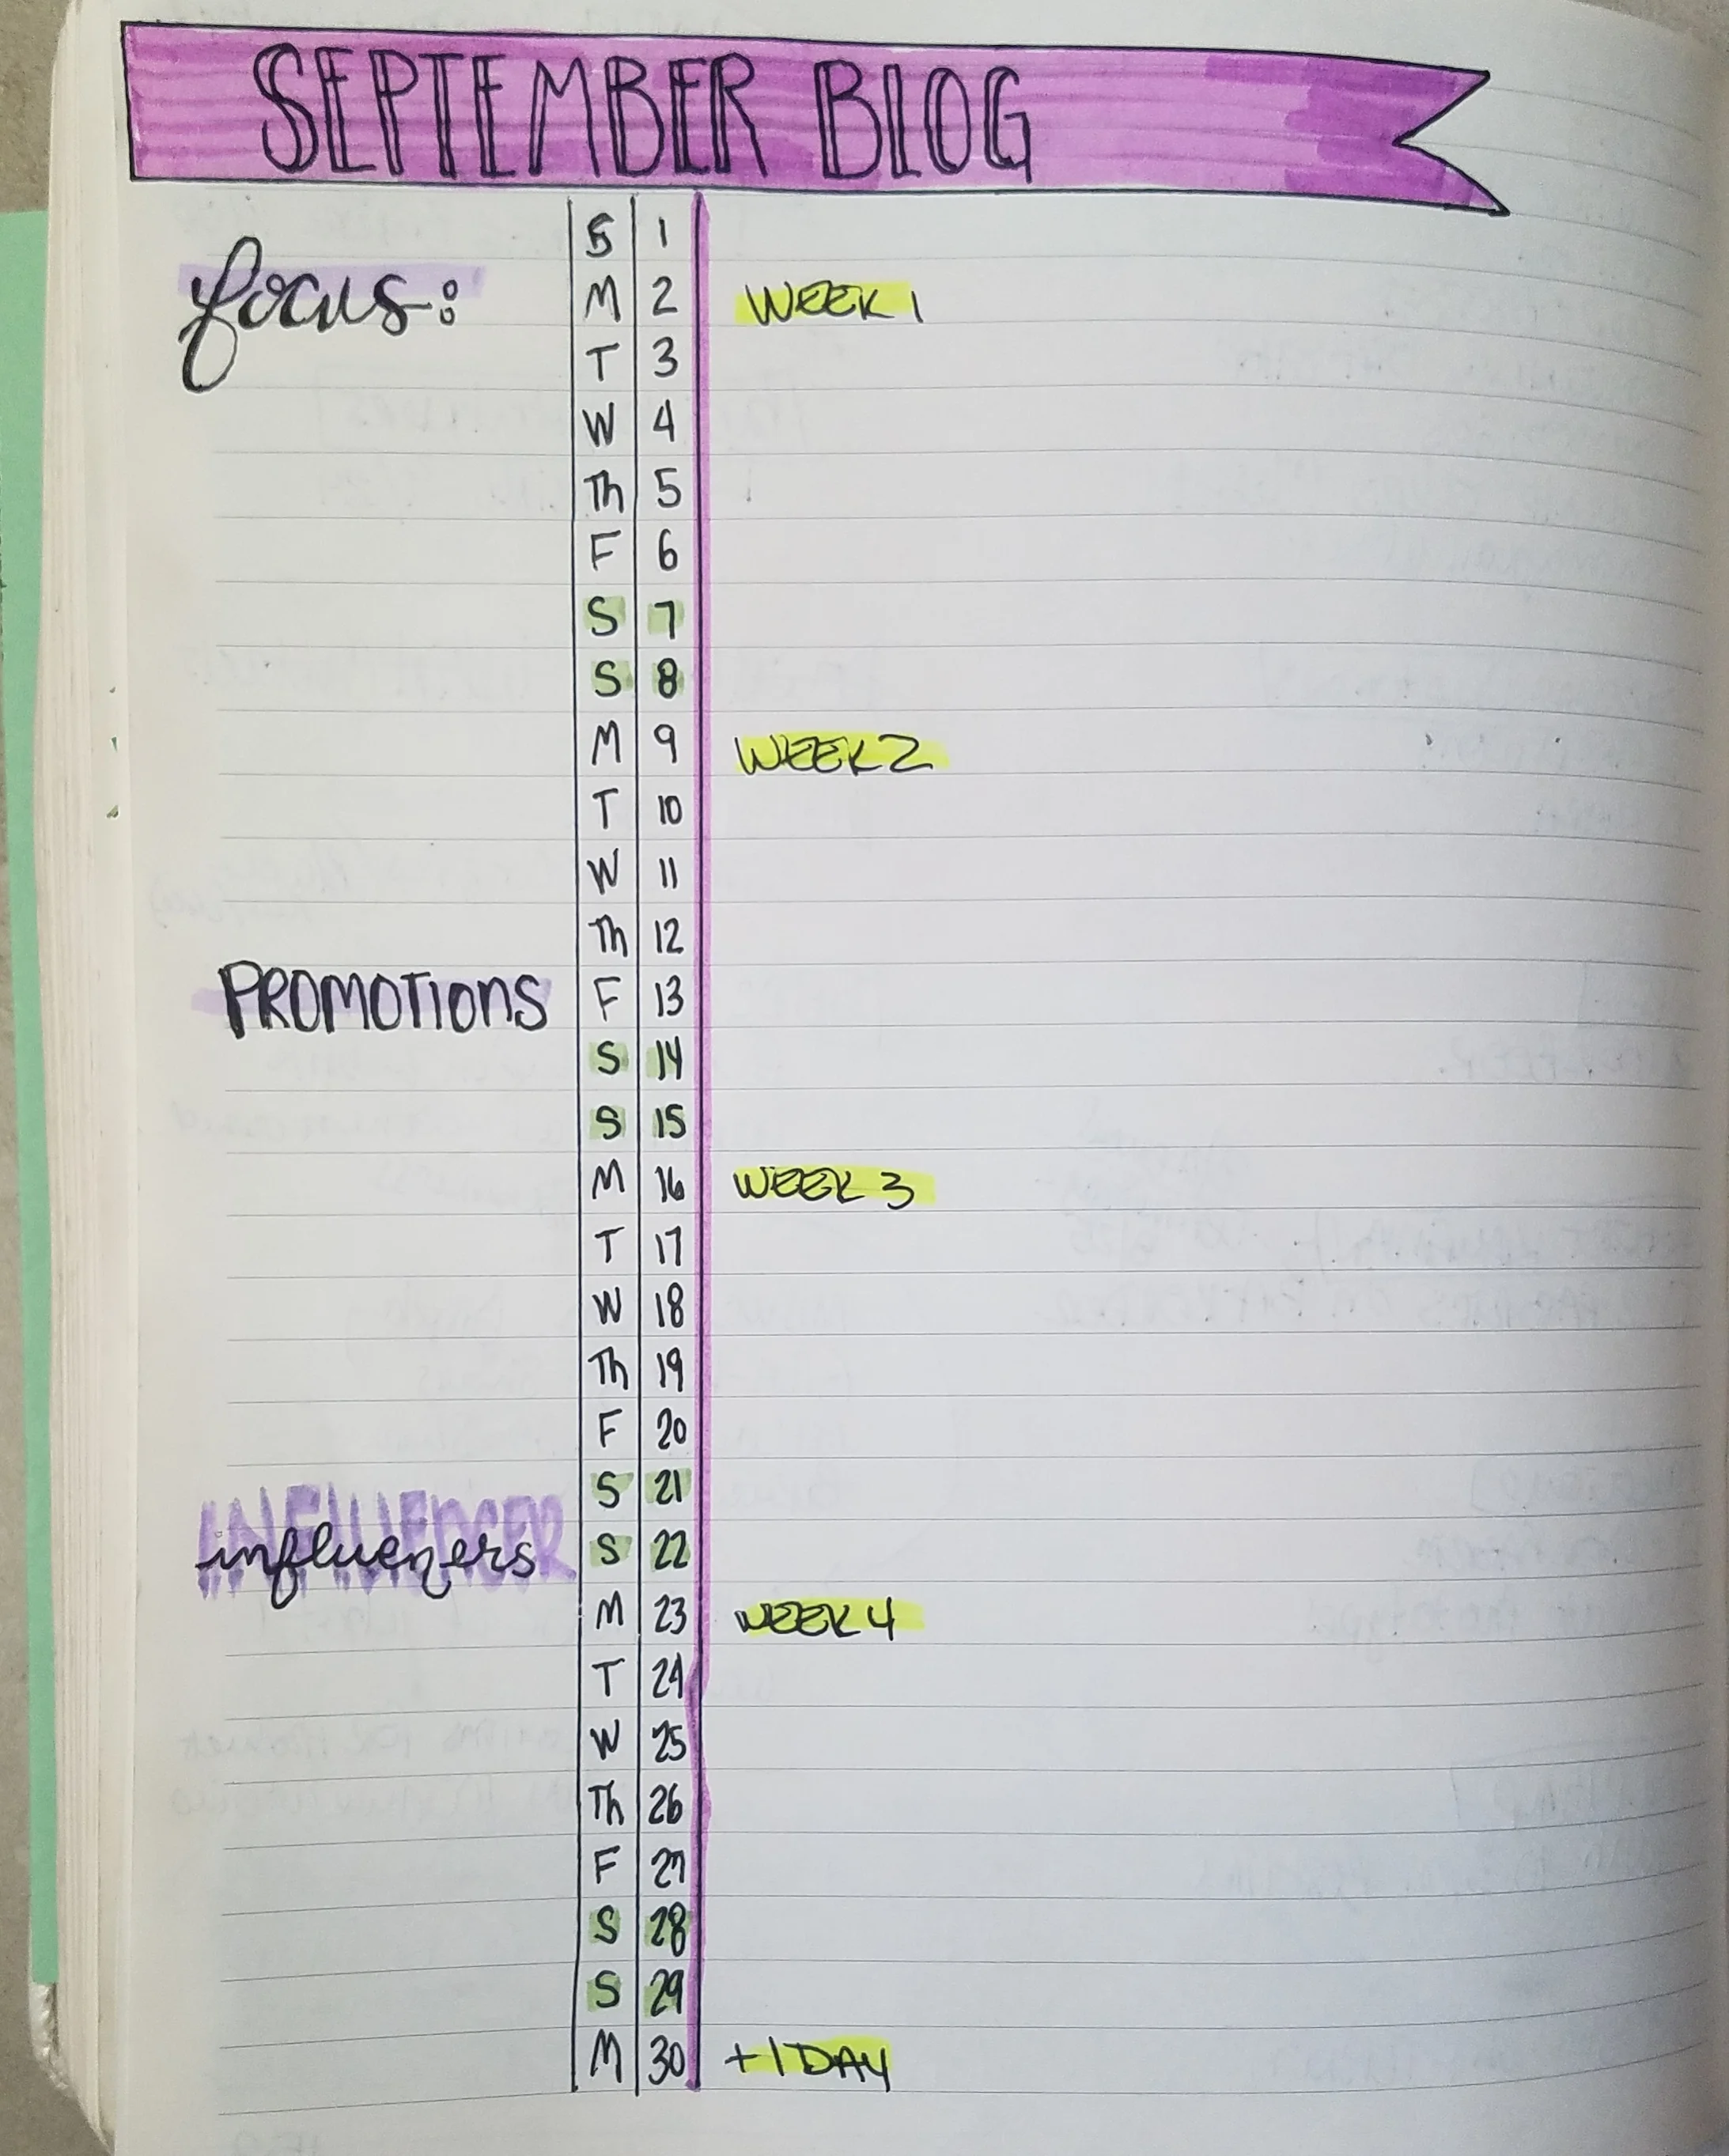 SEPTEMBER BLOG
S 1
focus:
M 2 WEEK 1
T 3
W 4
Th 5
F 6
S 7
S 8
M 9 WEEK 2
T 10
W 11
Th 12
PROMOTIONS F 13
S 14
S 15
M 16 WEEK 3
T 17
W 18
Th 19
F 20
S 21
INFLUENCER
influeners S 22
M 23 WEEK 4
T 24
W 25
Th 26
F 27
S 28
S 29
M 30 +1 DAY